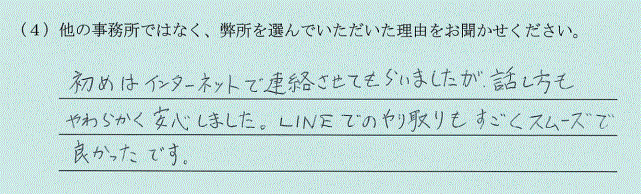 （４）他の事務所ではなく、弊所を選んでいただいた理由をお聞かせください。
初めはインターネットで連絡させてもらいましたが、話し方も
やわらかく安心しました。LINEでのやり取りもすごくスムーズで
良かったです。